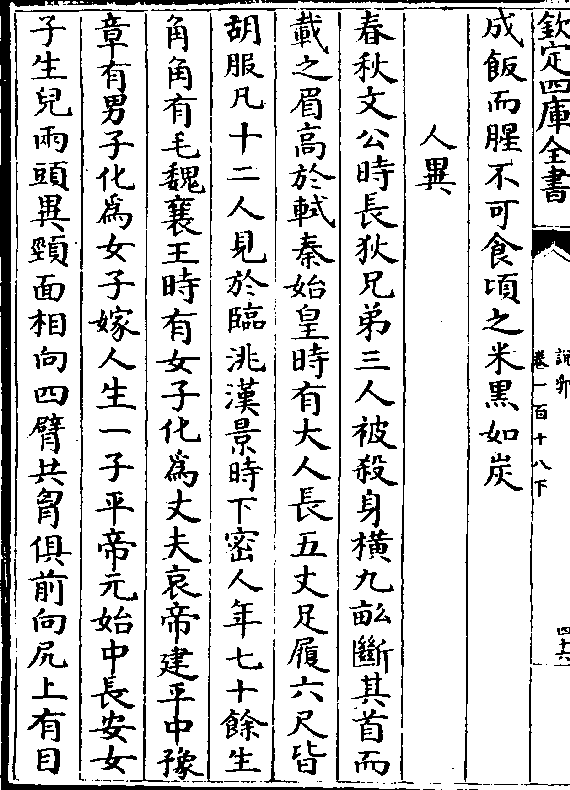 欽定四庫全書
說郛
卷一百十八下
四十六
成飯而腥不可食頃之米黑如炭
人異
春秋文公時長狄兄弟三人被殺身橫九畝斷其首而
載之眉高於軾秦始皇時有大人長五丈足履六尺皆
胡服凡十二人見於臨洮漢景時下密人年七十餘生
角角有毛魏襄王時有女子化為丈夫哀帝建平中豫
章有男子化為女子嫁人生一子平帝元始中長安女
子生兒兩頭異頸面相向四臂共胷俱前向尻上有目